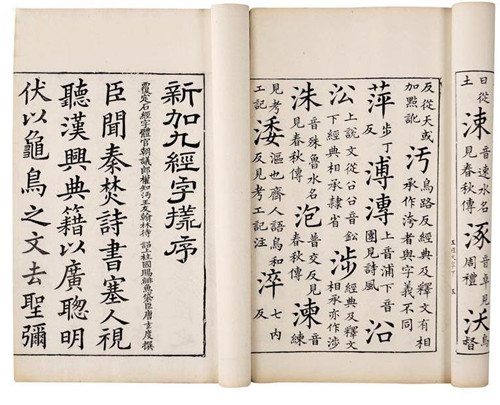 曰從土涑音速水名見春秋傳涿音卓見周禮沃烏督
反從夭或加點訛汚烏路反經典及釋文有相承作洿者與字義不同
萍步丁反溥漙上音浦下音團見詩風沿
㳂上說文從㕣㕣音鈆下經典相承隸省涉經典及釋文相承亦作涉
洙音殊魯水名見春秋傳泡普交反見春秋傳湅音練
見考工記涹漚也齊人語烏和反見考工記注淬七內反
新加九經字㨾序
覆定石經字體官朝議郎權知沔王友翰林待詔上柱國賜緋魚袋臣唐玄度撰
臣聞秦焚詩書塞人視
聽漢興典籍以廣聰明
伏以龜鳥之文去聖彌